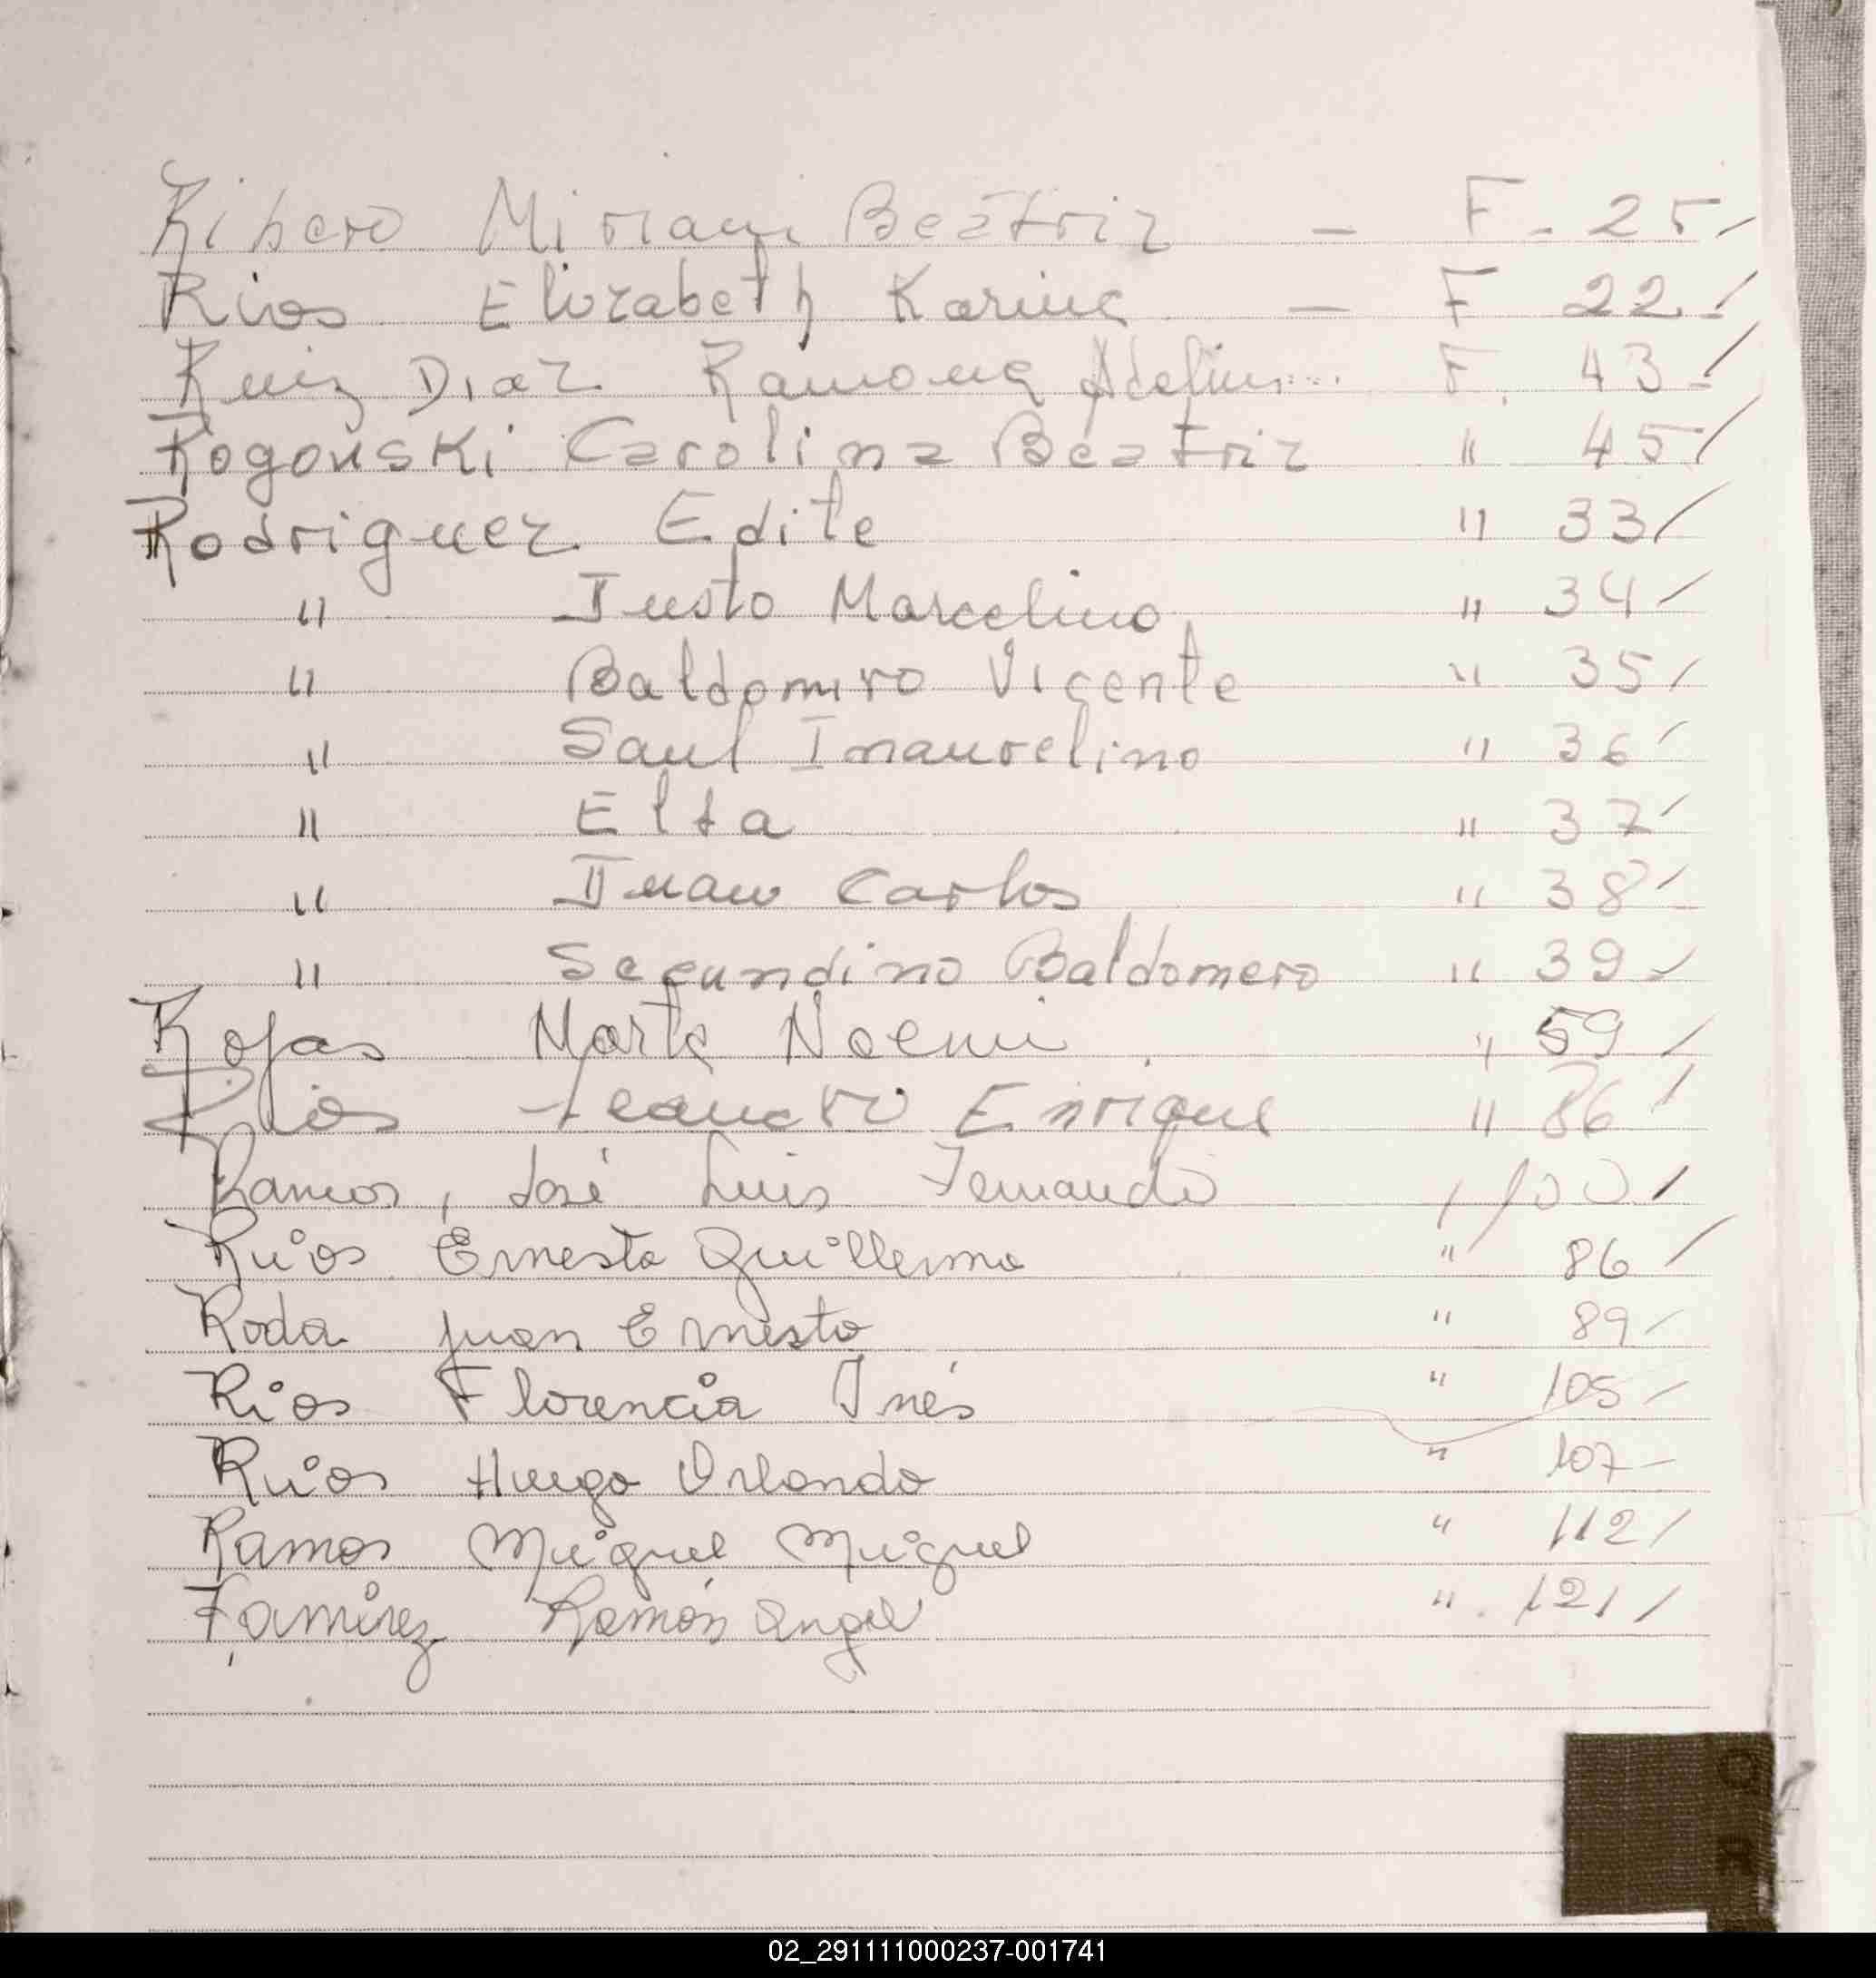 Ribero Miriam Beatriz — F. 25
Rios Elizabeth Karina — F 22
Ruiz Diaz Ramona Adelin... F. 43
Rogonski Carolina Beatriz " 45
Rodriguez Edite " 33
" Justo Marcelino " 34
" Baldomiro Vicente " 35
" Saul Imaurelino " 36
" Elta " 37
" Juan Carlos " 38
" Secundino Baldomero " 39
Rojas Marta Noemi " 59
Rios Leandro Enrique " 86
Ramos, José Luis Fernando " 100
Rios Ernesto Guillermo " 86
Roda Juan Ernesto " 89
Rios Florencia Inés " 105
Rios Hugo Orlando " 107
Ramos Miguel Miguel " 112
Ramirez Ramón Angel " 121
02_291111000237-001741